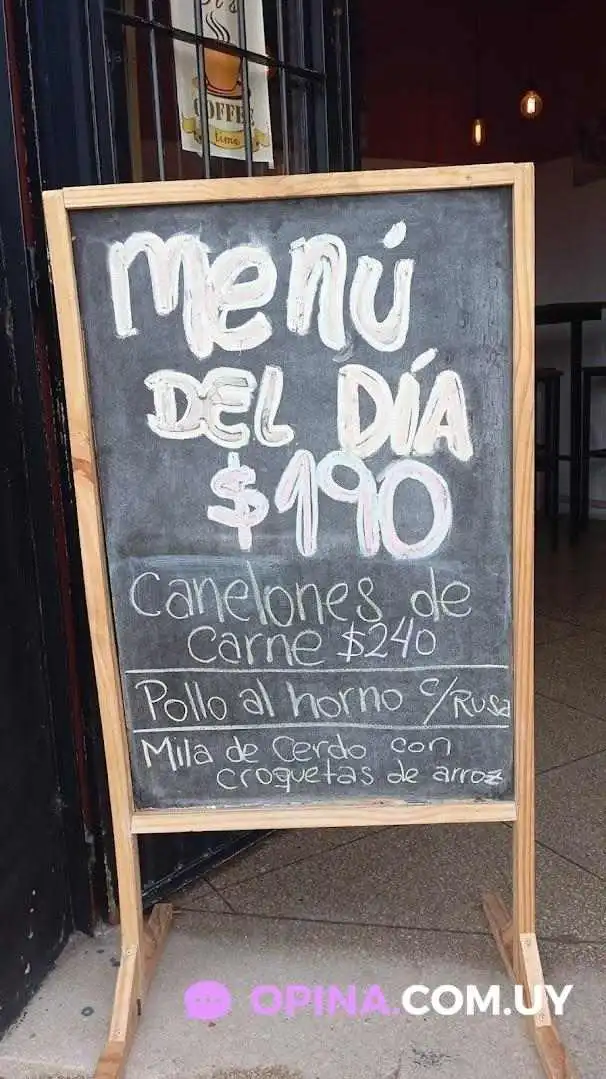 COFFEE
time
Menú
DEL DÍA
$190
Canelones de
Carne $240
Pollo al horno c/Rusa
Mila de Cerdo con
croquetas de arroz
OPINA.COM.UY